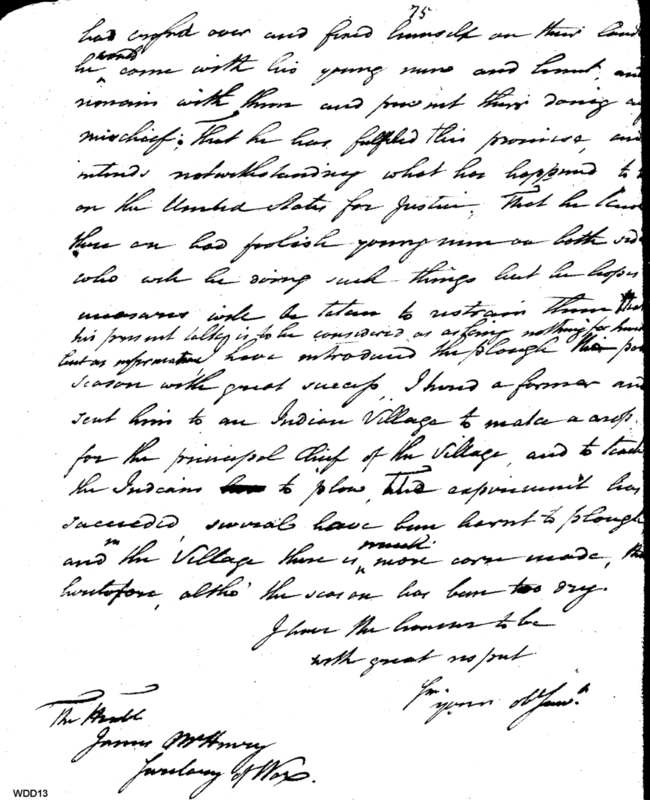 75
had crossed over and fired himself on their land
he would come with his young men and hunt, and
remain with them and prevent their doing any
mischief; That he has fulfiled this promise, and
intends notwithstanding what has happened to
on the United States for Justice, That he
there are bad foolish young men on both
who will be doing such things but he hopes
measures will be taken to restrain them, that
his present talk is to be considered as asking nothing for himself
but as information, have introduced the plough this past
season with great success, I hired a farmer and
sent him to an Indian Village to make a crop
for the principal Chief of the Village, and to teach
the Indians to plow, The experiment has
succeeded, several have been learnt to plough
and in the Village there is much more corn made, than
heretofore, altho' the season has been too dry.
I have the honour to be
with great respect
Sir
your obt. Servt.
The Honble
James McHenry
Secretary of War.
WDD13